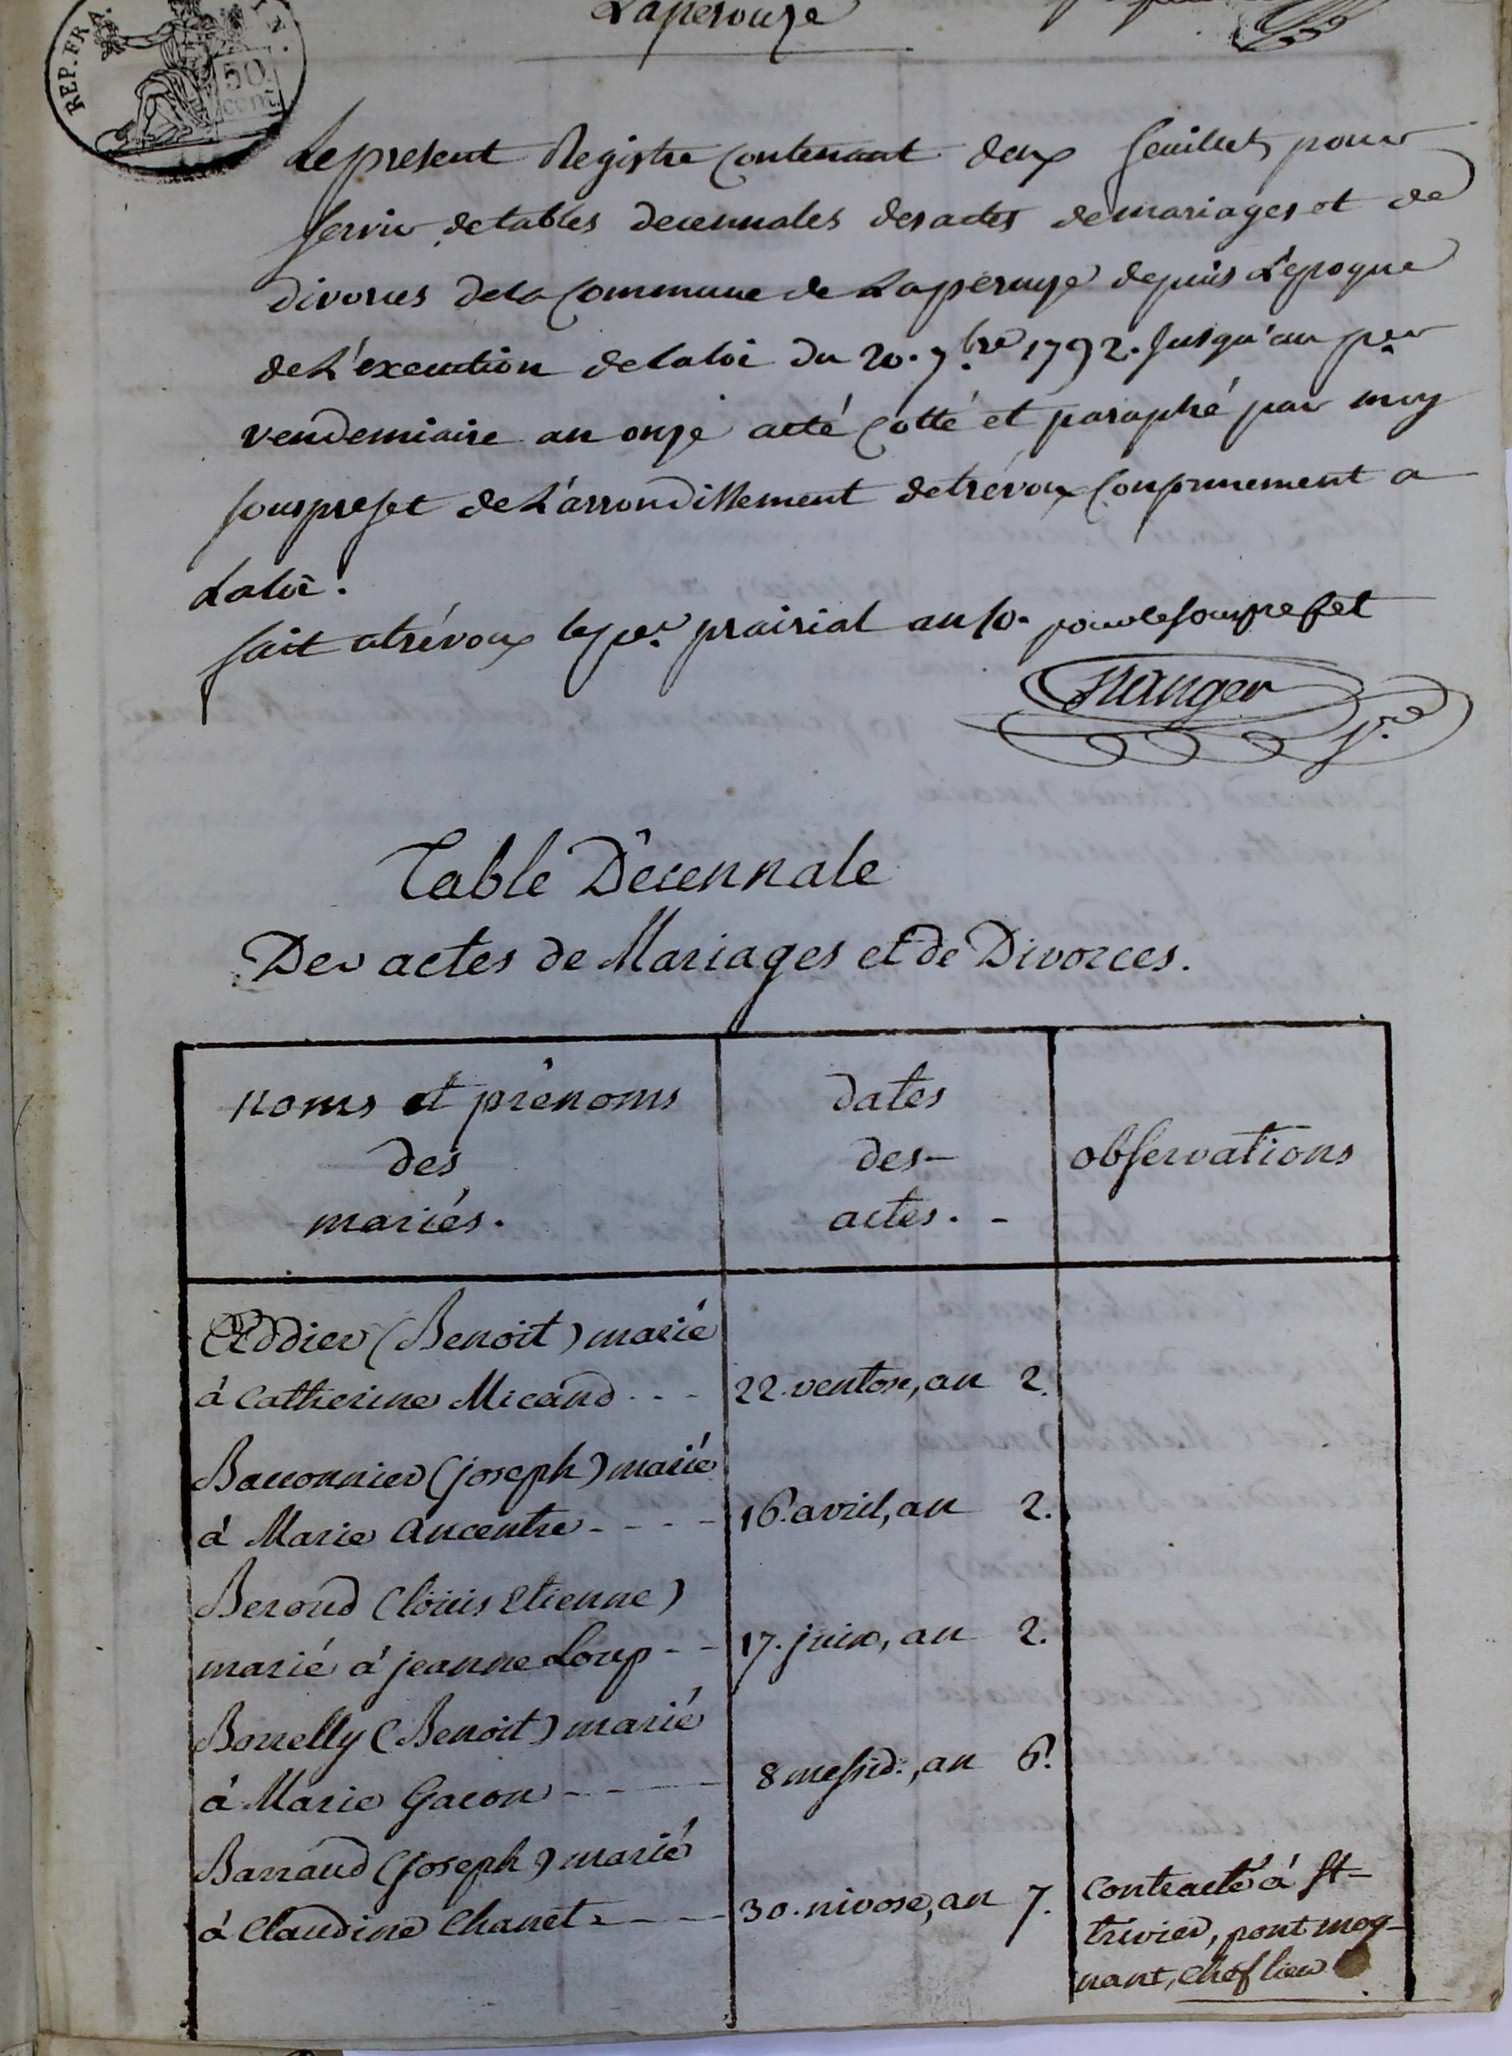 REP. FRA.
50
cent
Laperouze
Le present Registre contenant deux feuillets pour
servir de tables decennales des actes de mariages et de
divorces de la Commune de Laperouze depuis L'epoque
de L'execution de la loi du 20. 7.bre 1792. Jusqu'au p.er
vendemiaire an onze acté cotté et paraphé par moy
sous prefet de L'arrondissement de trévoux conformement a
La loi.
fait a trévoux le p.er prairial an 10. pour le sous prefet
Table Décennale
Des actes de Mariages et de Divorces.
noms et prénoms
des
mariés.
dates
des-
actes. -
observations
(Benoit) marié
à Catherine Micaud - - -
22. ventose, an 2.
Bauonnier (joseph) marié
à Marie ancentre - - - -
16. avril, an 2.
Beroud (loüis Etienne)
marié à jeanne Loup - -
17. juin, an 2.
Borrelly (Benoit) marié
à Marie Gacon - - - -
8 messid., an 6.
Barraud (joseph) marié
à Claudine Chanet - - - -
30. nivose, an 7.
contracté à st-
trivier, pont mog-
nant, chef lieu